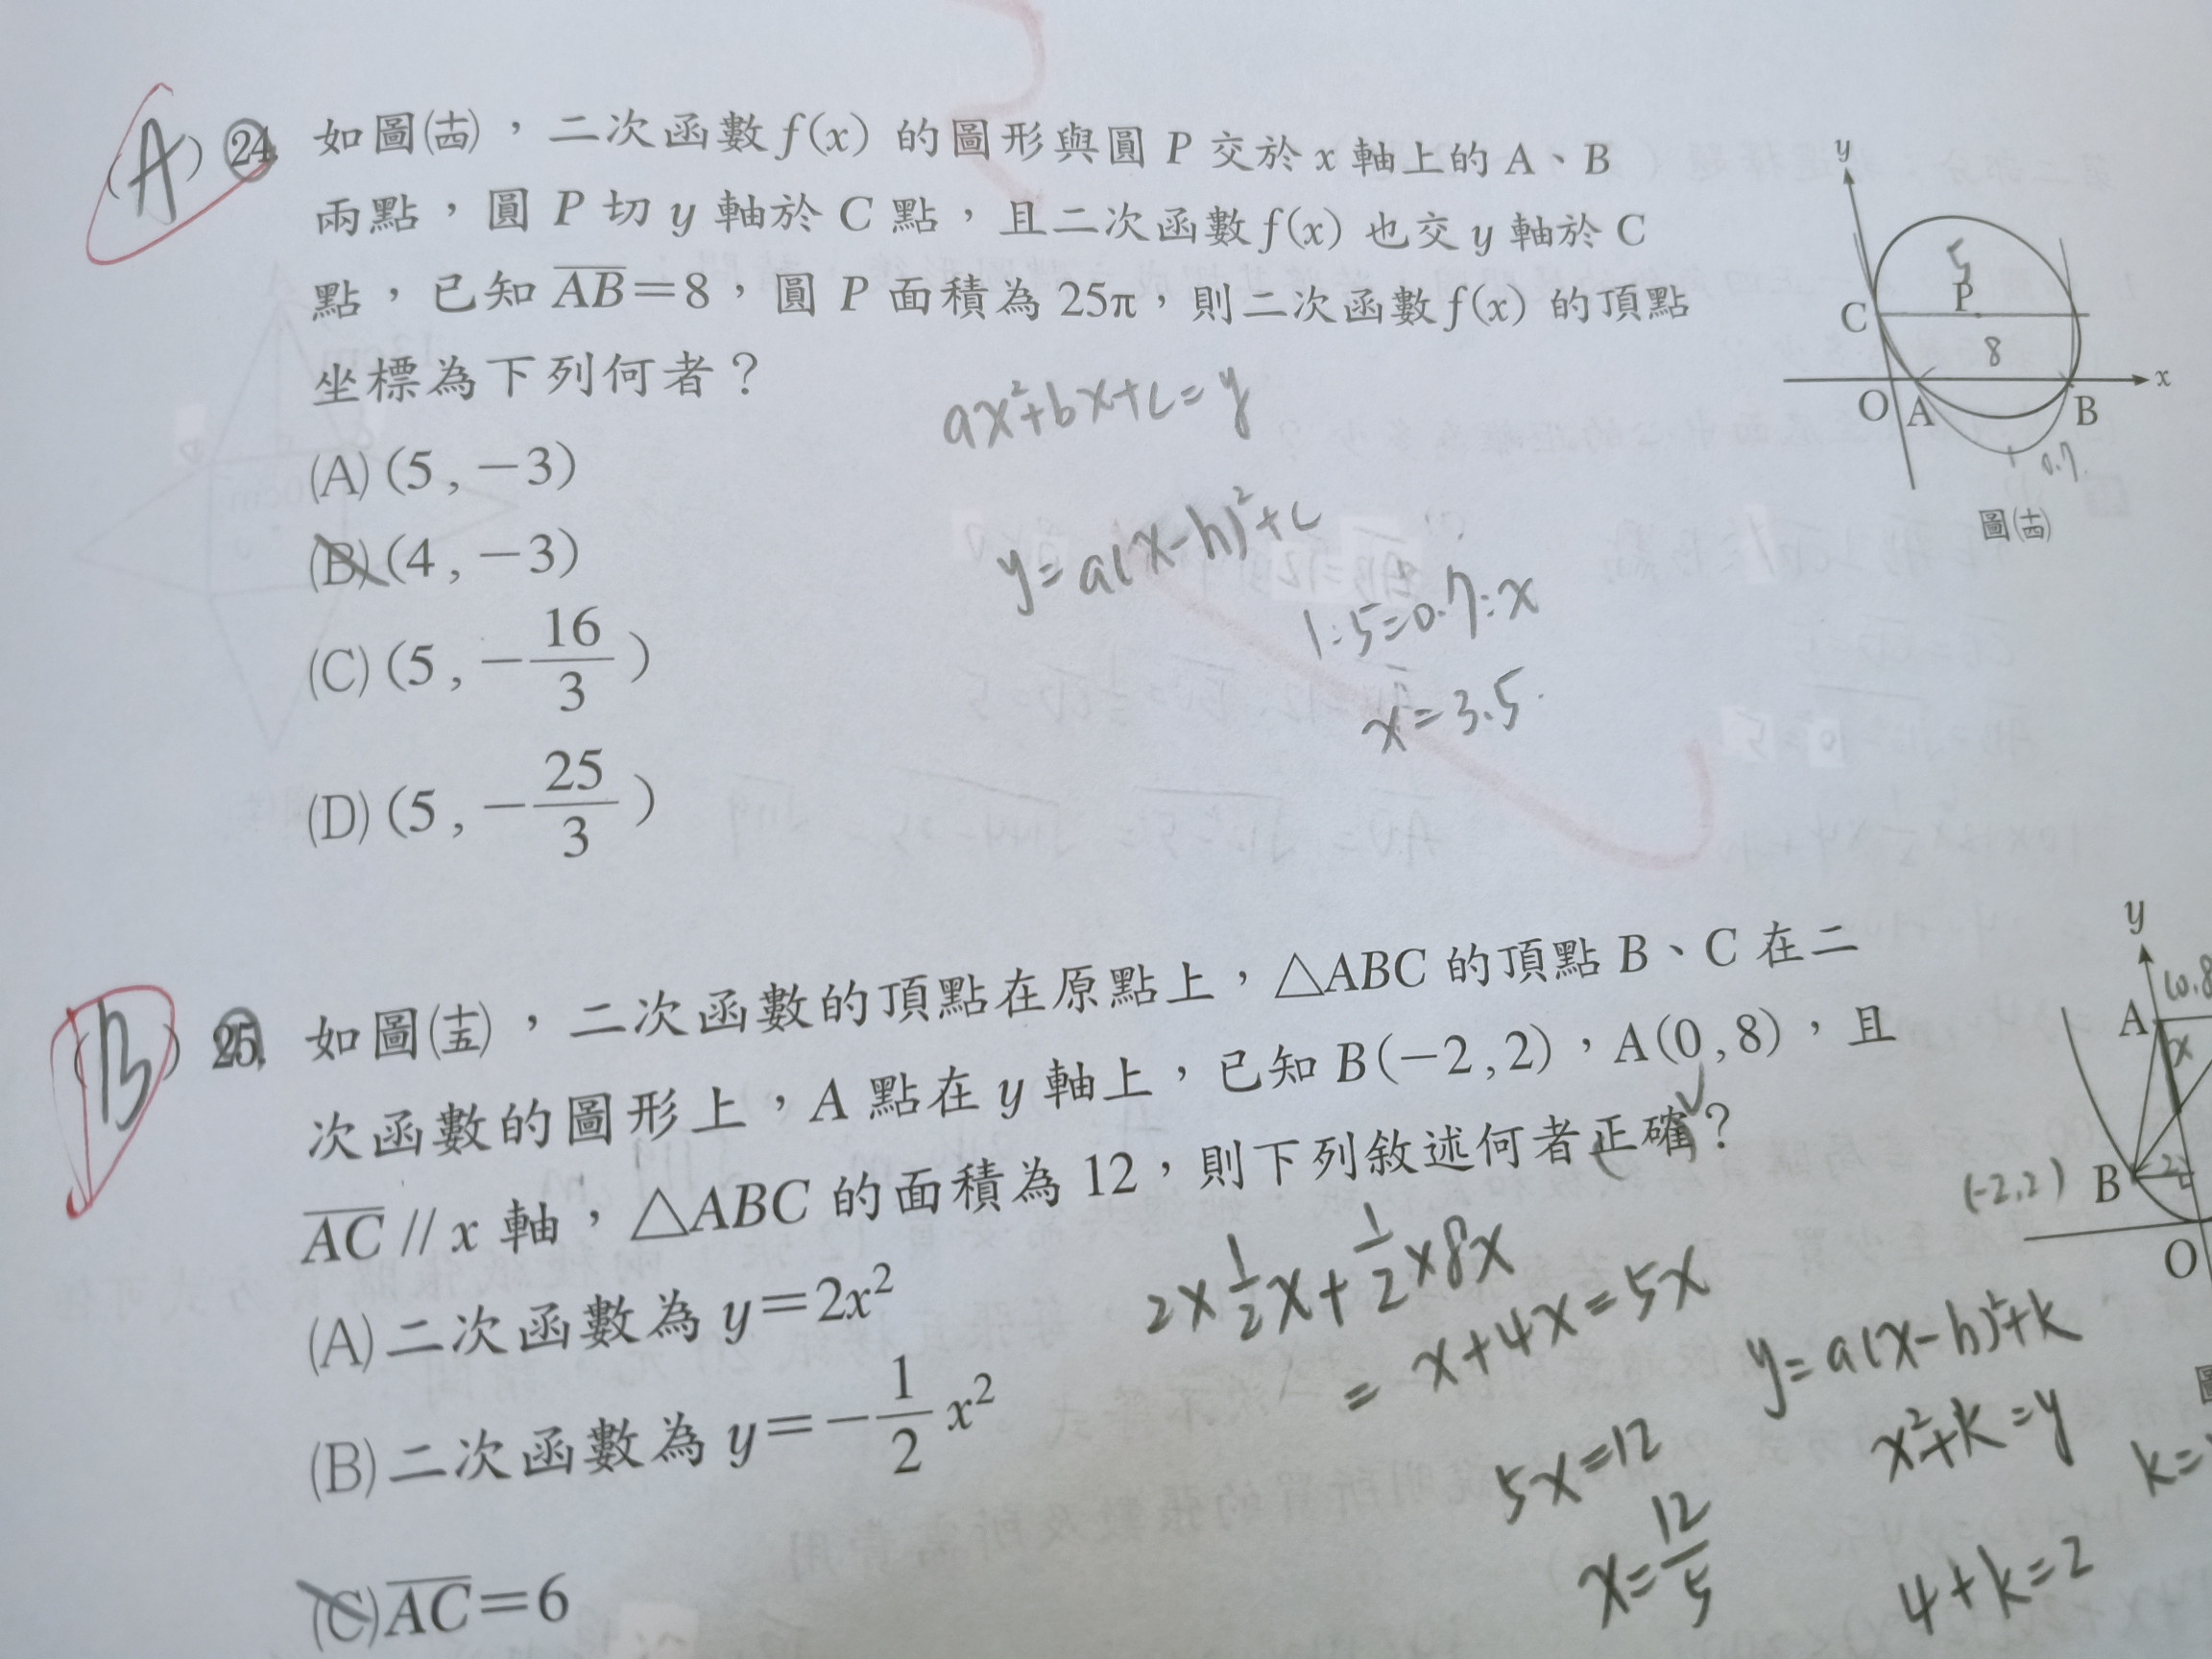 (A) 24. 如圖(十四)，二次函數 f(x) 的圖形與圓 P 交於 x 軸上的 A、B
兩點，圓 P 切 y 軸於 C 點，且二次函數 f(x) 也交 y 軸於 C
點，已知 AB=8，圓 P 面積為 25π，則二次函數 f(x) 的頂點
坐標為下列何者？
(A) (5 , −3)
(B) (4 , −3)
(C) (5 , −16/3)
(D) (5 , −25/3)
ax²+bx+c=y
y=a(x-h)²+c
1:5=0.7:x
x=3.5
y
5
P
C
8
x
O A B
1 0.7
圖(十四)
(B) 25. 如圖(十五)，二次函數的頂點在原點上，△ABC 的頂點 B、C 在二
次函數的圖形上，A 點在 y 軸上，已知 B(−2 , 2)，A(0 , 8)，且
AC // x 軸，△ABC 的面積為 12，則下列敘述何者正確？
(A) 二次函數為 y=2x²
(B) 二次函數為 y=−1/2 x²
(C) AC=6
2x½x+½x8x
= x+4x=5x
5x=12
x=12/5
y=a(x-h)²+k
x²+k=y
4+k=2
k=
y
(0.8
A
x
(-2.2) B 2
O
圖